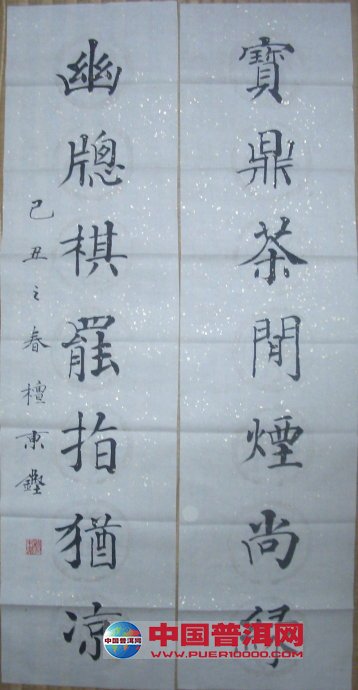 寶鼎茶閒煙尚綠
幽牕棋罷指猶凉
己丑之春檀東
中国普洱网
WWW.PUER10000.COM